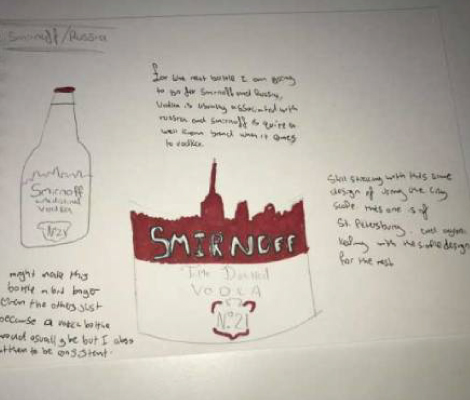 Smirnoff / Russia
For the next bottle I am going
to go for Smirnoff and Russia,
Vodka is usually associated with
russia and smirnoff is quite a
well known brand when it comes
to vodka.
Smirnoff
Vodka
Nº21
SMIRNOFF
VODKA
Nº21
Still sticking with the same
design of using the city
this one is of
St. Petersburg. and
with the
for the rest
might make this
bottle a bit bigger
then the others just
because a bottle
would usually be but I also
them to be consistent.